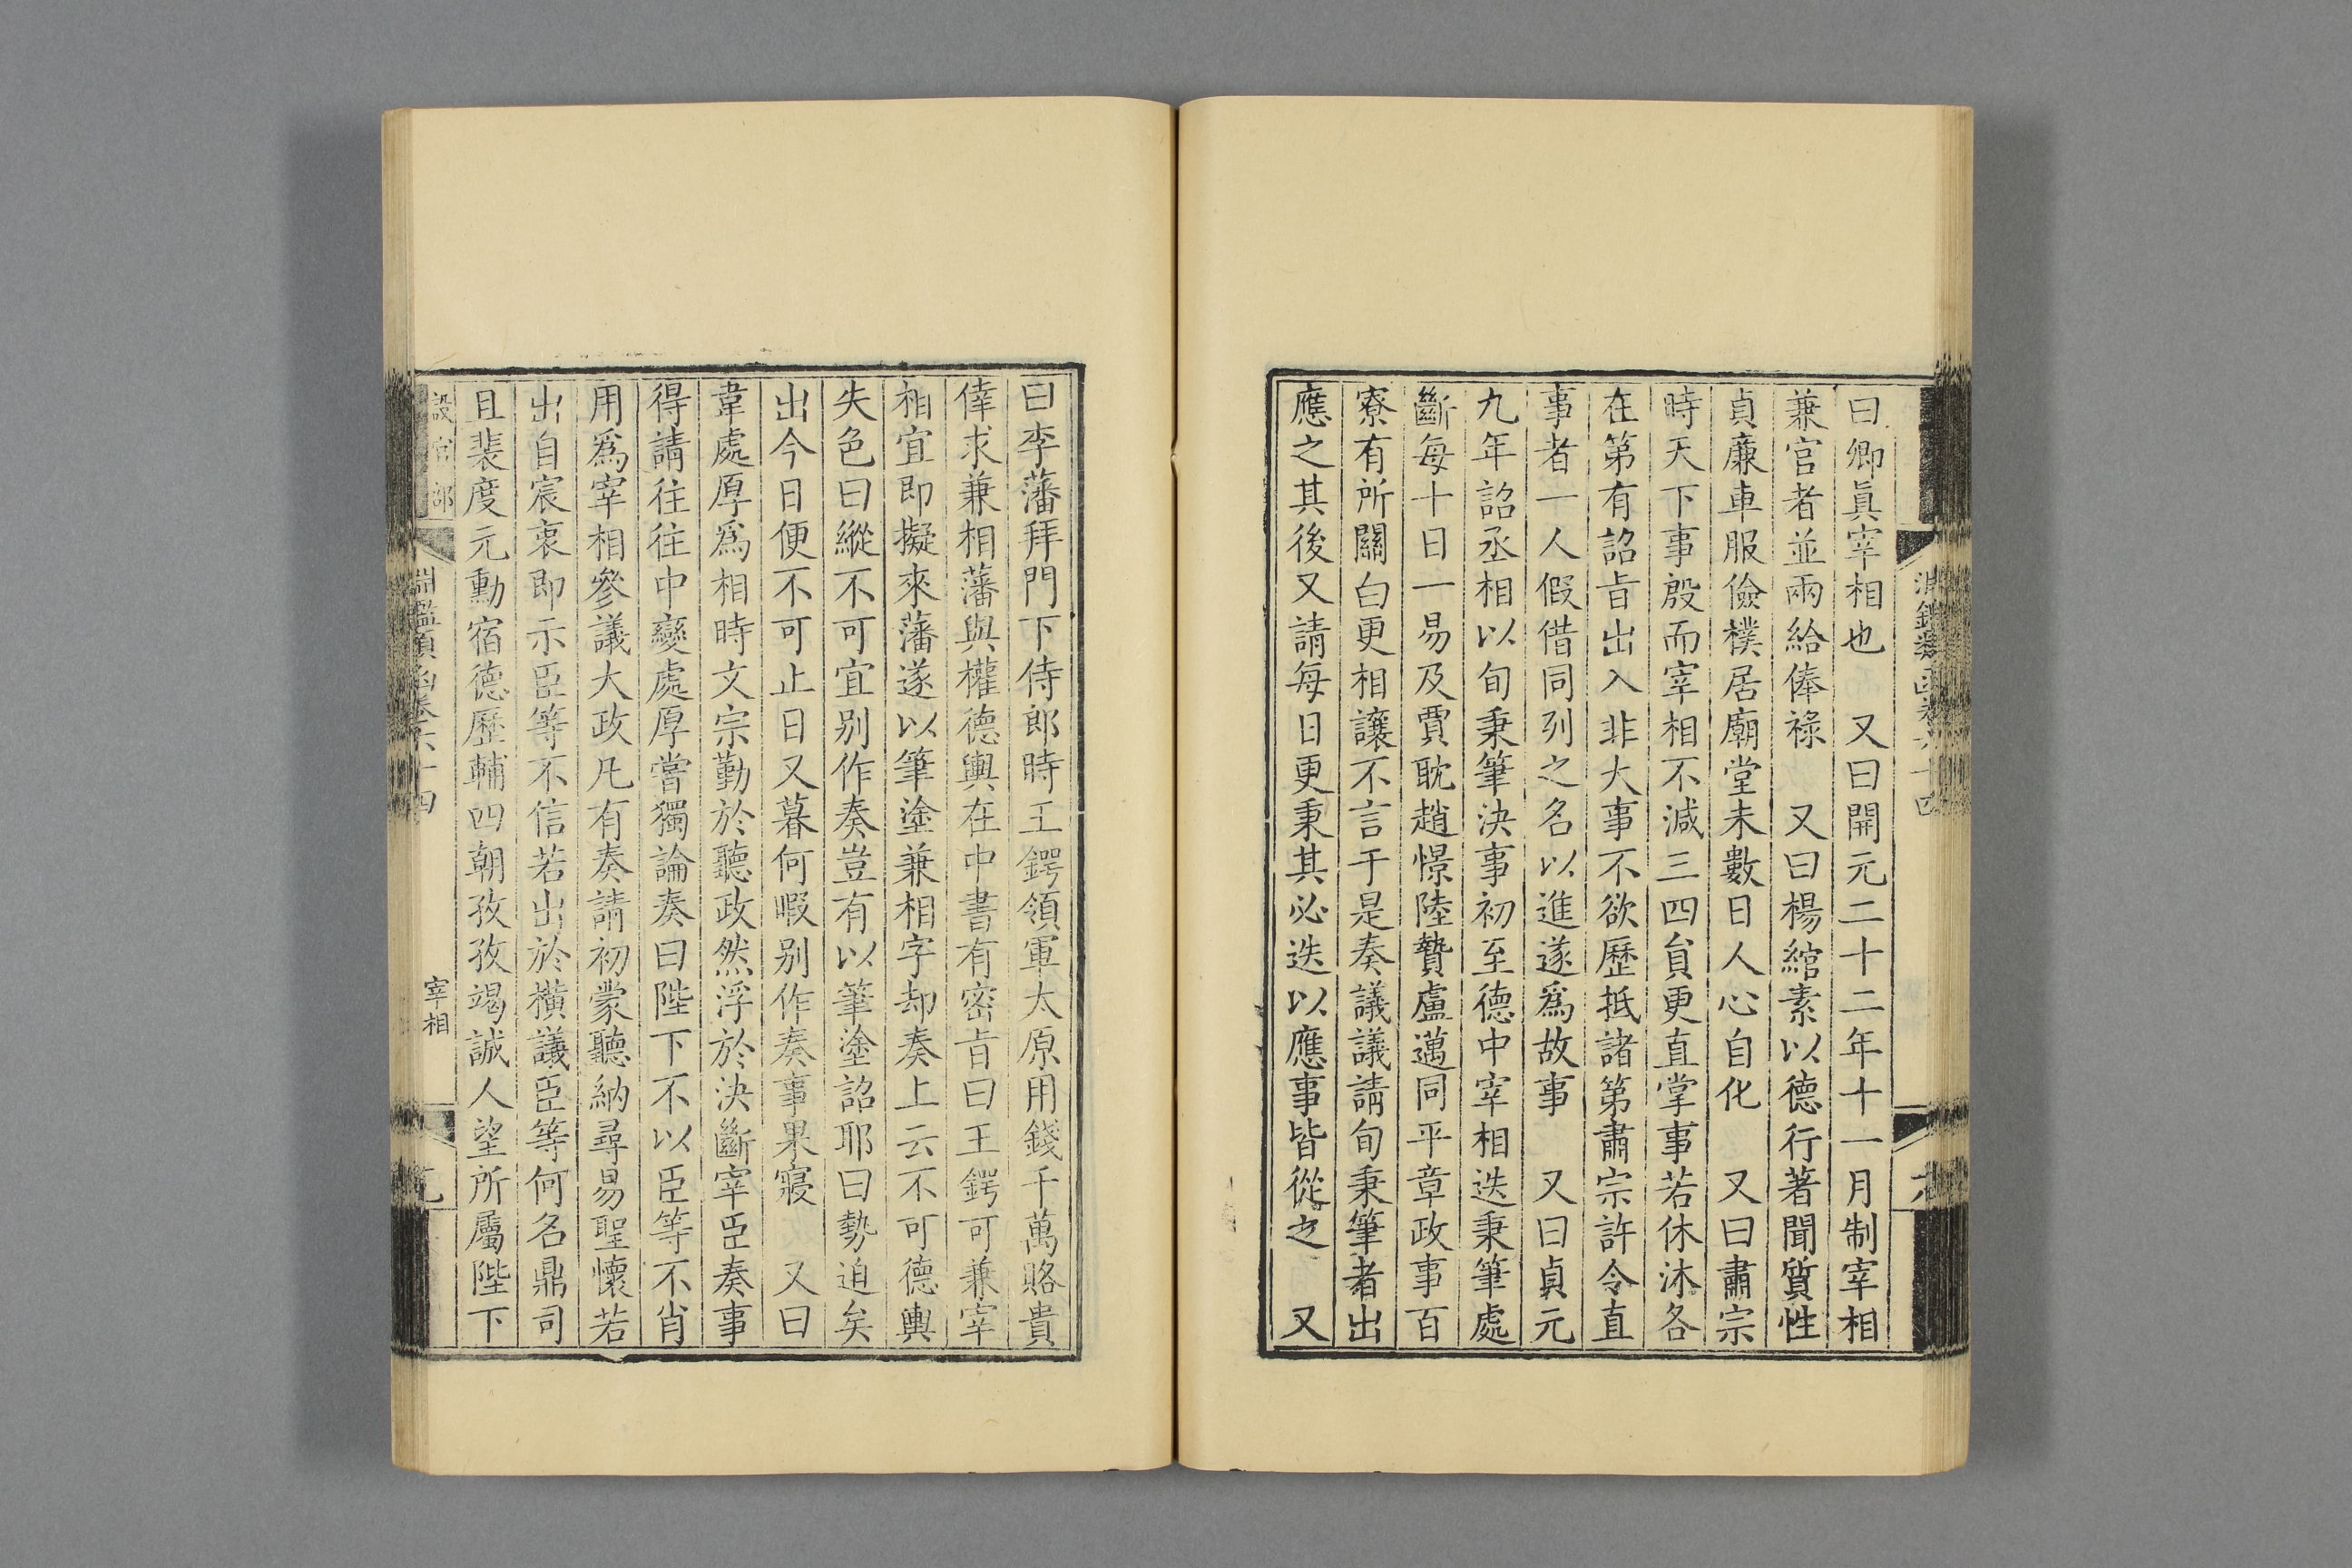 曰卿眞宰相也　又曰開元二十二年十一月制宰相
兼官者並兩給俸祿　又曰楊綰素以德行著聞質性
貞廉車服儉樸居廟堂未數日人心自化　又曰肅宗
時天下事殷而宰相不減三四員更直掌事若休沐各
在第有詔旨出入非大事不欲歷抵諸第肅宗許令直
事者一人假借同列之名以進遂爲故事　又曰貞元
九年詔丞相以旬秉筆決事初至德中宰相迭秉筆處
斷每十日一易及賈耽趙憬陸贄盧邁同平章政事百
寮有所關白更相讓不言于是奏議議請旬秉筆者出
應之其後又請每日更秉其必迭以應事皆從之　又
曰李藩拜門下侍郎時王鍔領軍太原用錢千萬賂貴
倖求兼相藩與權德輿在中書有密旨曰王鍔可兼宰
相宜即擬來藩遂以筆塗兼相字却奏上云不可德輿
失色曰縱不可宜别作奏豈有以筆塗詔耶曰勢迫矣
出今日便不可止日又暮何暇别作奏事果寢　又曰
韋處厚爲相時文宗勤於聽政然浮於決斷宰臣奏事
得請往往中變處厚嘗獨論奏曰陛下不以臣等不肖
用爲宰相參議大政凡有奏請初蒙聽納尋易聖懷若
出自宸衷即示臣等不信若出於橫議臣等何名鼎司
且裴度元勳宿德歷輔四朝孜孜竭誠人望所屬陛下
設官部
淵鑑類函卷六十四
宰相